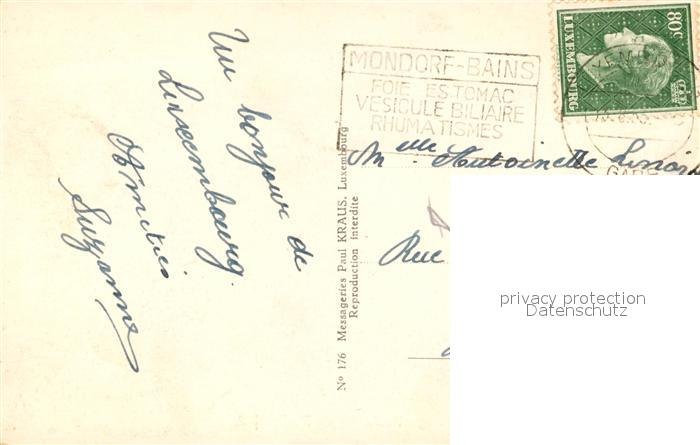 Un bonjour de
Luxembourg.
Amitiés
Suzanne
Nº 176 Messageries Paul KRAUS, Luxembourg
Reproduction interdite
MONDORF-BAINS
FOIE ESTOMAC
VESICULE BILIAIRE
RHUMATISMES
80c
LUXEMBOURG
GARE
Melle Antoinette
Rue
privacy protection
Datenschutz